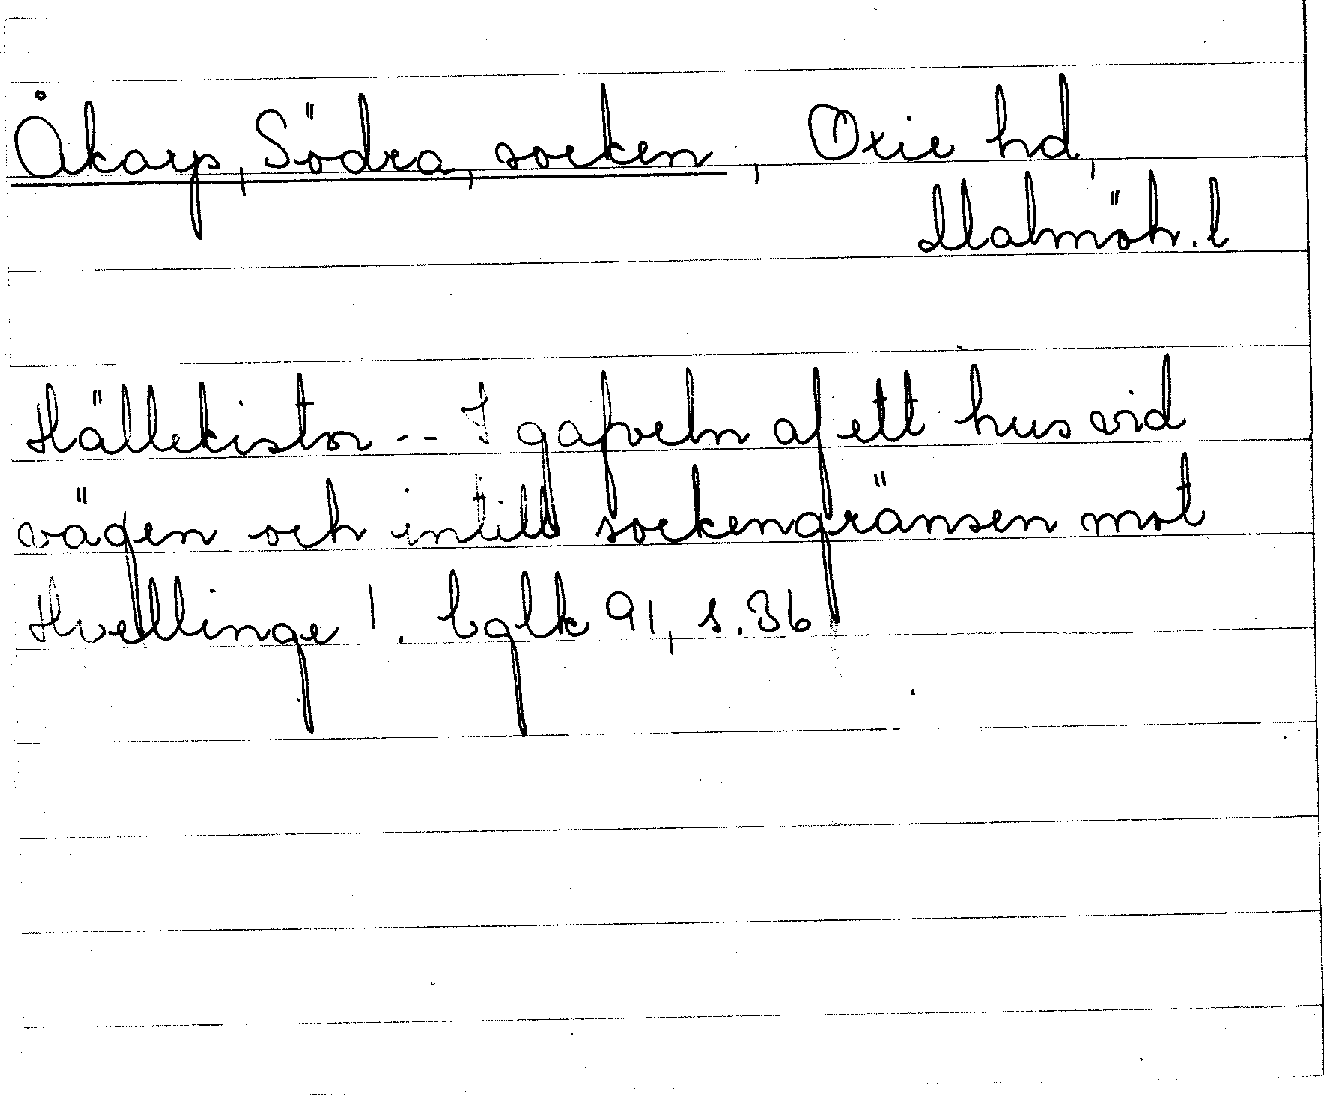 Åkarp, Södra, socken, Oxie hd,
Malmöh. l
Hällekistor -- I gafveln af ett hus vid
vägen och intill sockengränsen mot
Hvellinge 1. bglk 91, s. 36